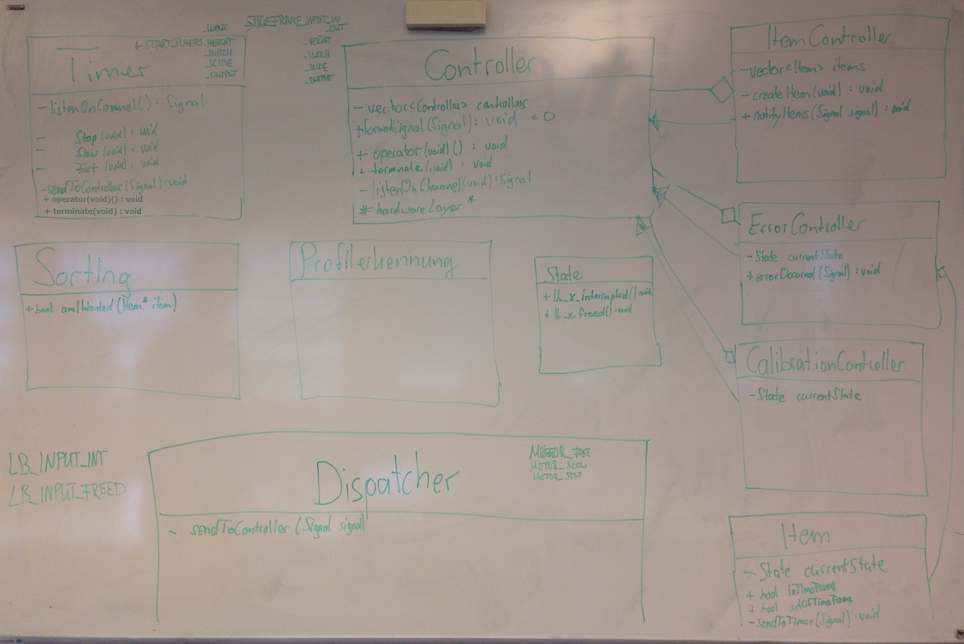 Timer
_INPUT
+ START_TIMERS_HEIGHT
_SWITCH
_SLIDE
_OUTPUT
- listenOnChannel() : Signal
- Stop (void) : void
- Slow (void) : void
- Fast (void) : void
- sendToController (Signal) : void
+ operator(void)() : void
+ terminate(void) : void
_TIMEFRAME_INPUT_IN
_OUT
_HEIGHT
_SWITCH
_SLIDE
_OUTPUT
Controller
- vector<Controller> controllers
+ forwardSignal (Signal) : void = 0
+ operator (void) () : void
+ terminate (void) : void
- listenOnChannel (void) : Signal
# hardwareLayer *
ItemController
- vector<Item> items
- createItem (void) : void
+ notifyItems (Signal signal) : void
ErrorController
- State currentState
+ errorOccurred (Signal) : void
CalibrationController
- State currentState
Sorting
+ bool amIWanted (Item* item)
Profilerkennung
State
+ lb_x_interrupted() : void
+ lb_x_freed() : void
LB_INPUT_INT
LB_INPUT_FREED
Dispatcher
MOTOR_FAST
MOTOR_SLOW
MOTOR_STOP
- sendToController (Signal signal)
Item
- State currentState
+ bool inTimeFrame
+ bool outOfTimeFrame
- sendToTimer (Signal) : void